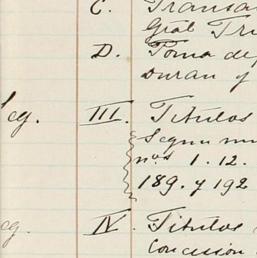 C. Transa
Gral Tri
D. Toma de
Duran y
Leg. III. Titulos
Segun nu
nos 1. 12.
189. y 192
eg. IV. Titulos
Concesion